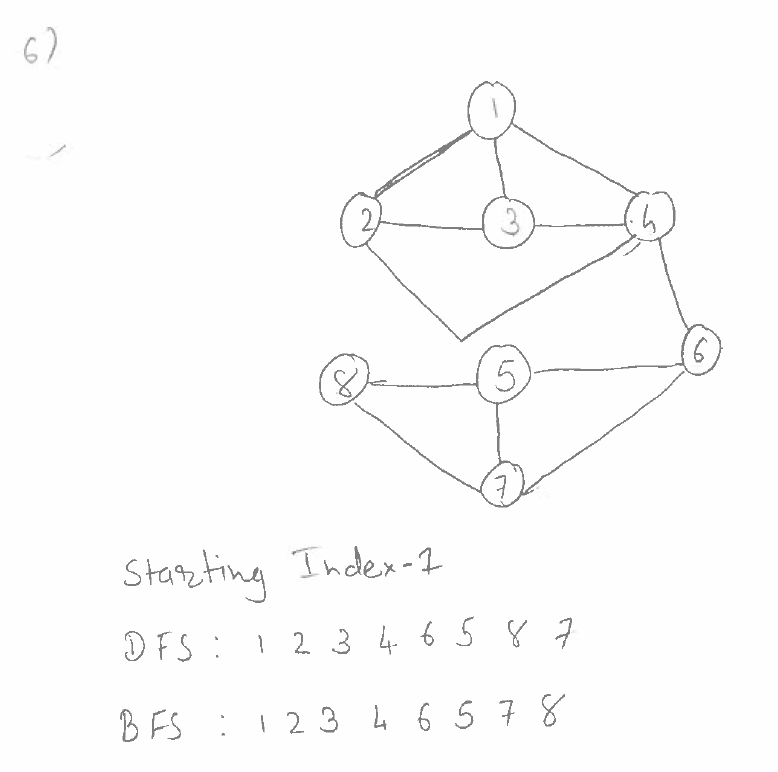 6)
1
2 3 4
8 5 6
7
Starting Index-1
DFS : 1 2 3 4 6 5 8 7
BFS : 1 2 3 4 6 5 7 8